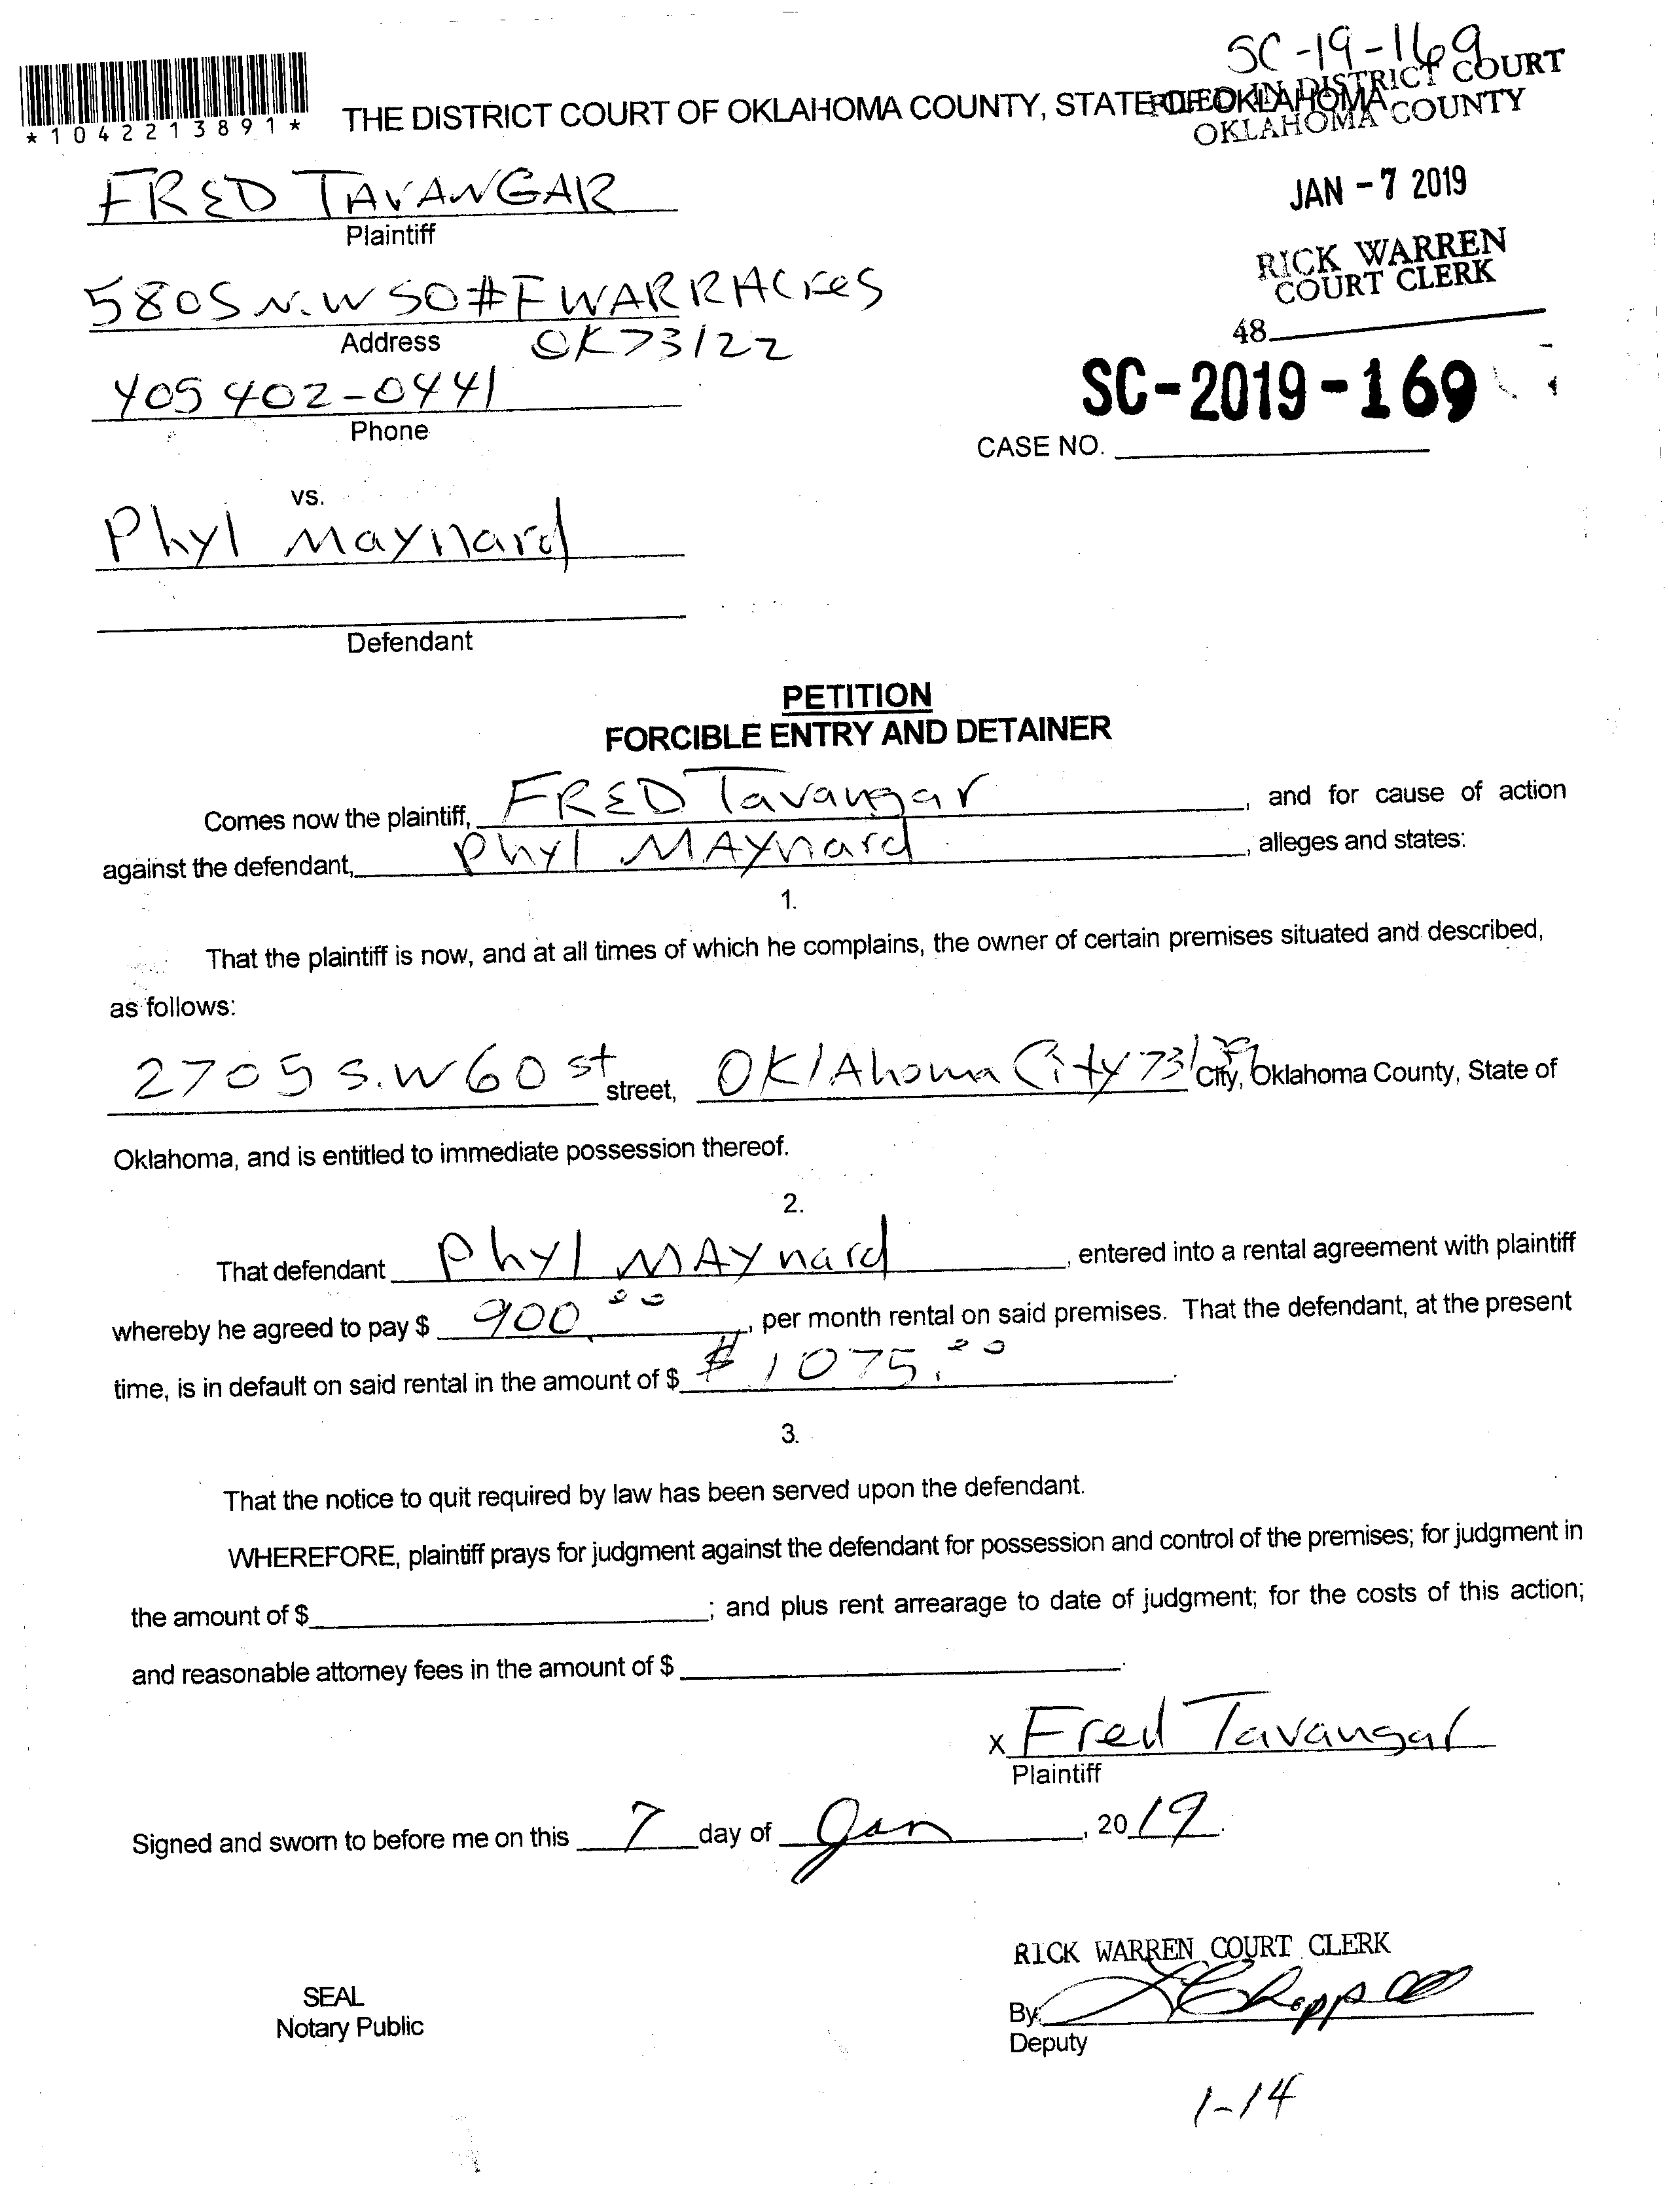 SC-19-169
THE DISTRICT COURT OF OKLAHOMA COUNTY, STATE OF OKLAHOMA
FILED IN DISTRICT COURT
OKLAHOMA COUNTY
*1042213891*
FRED TAVANGAR
Plaintiff
JAN -7 2019
5805 N.W 50 #F WARR ACres
Address
OK 73122
RICK WARREN
COURT CLERK
48
405 402-0441
Phone
SC-2019-169
CASE NO.
vs.
Phyl Maynard
Defendant
PETITION
FORCIBLE ENTRY AND DETAINER
Comes now the plaintiff, FRED Tavangar, and for cause of action
against the defendant, Phyl MAynard, alleges and states:
1.
That the plaintiff is now, and at all times of which he complains, the owner of certain premises situated and described,
as follows:
2705 S.W 60 st street, OKlAhoma City City, Oklahoma County, State of
Oklahoma, and is entitled to immediate possession thereof.
2.
That defendant Phyl MAynard, entered into a rental agreement with plaintiff
whereby he agreed to pay $ 900.00, per month rental on said premises. That the defendant, at the present
time, is in default on said rental in the amount of $ $1075.00.
3.
That the notice to quit required by law has been served upon the defendant.
WHEREFORE, plaintiff prays for judgment against the defendant for possession and control of the premises; for judgment in
the amount of $ ; and plus rent arrearage to date of judgment; for the costs of this action;
and reasonable attorney fees in the amount of $ .
x Fred Tavangar
Plaintiff
Signed and sworn to before me on this 7 day of Jan, 2019.
RICK WARREN COURT CLERK
SEAL
Notary Public
By:
Deputy
1-14